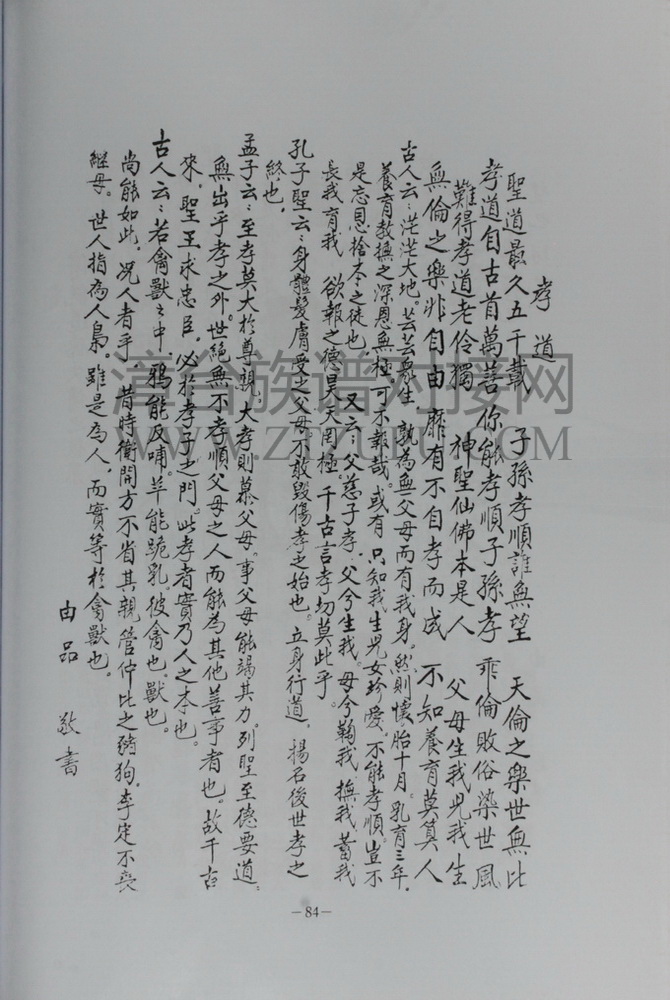 孝道
聖道最久五千載 子孫孝順誰無望 天倫之樂世無比
孝道自古首萬善 你能孝順子孫孝 乖倫敗俗染世風
難得孝道老伶獨 神聖仙佛本是人 父母生我兒我生
無倫之樂非自由 靡有不自孝而成 不知養育莫算人
古人云：茫茫大地。芸芸衆生，孰為無父母而有我身。然則懷胎十月。乳育三年，
養育教撫之深恩無極，可不報哉。或有只知我生兒女珍愛。不能孝順。豈不
是忘恩捨本之徒也。又云：父慈子孝，父兮生我。母兮鞠我，撫我，蓄我
長我育我 欲報之德昊天罔極。千古言孝切莫此乎。
孔子聖云：身體髮膚受之父母。不敢毀傷孝之始也。立身行道，揚名後世孝之
終也，
孟子云：至孝莫大於尊親。大孝則慕父母。事父母能竭其力。列聖至德要道。
無出乎孝之外。世絕無不孝順父母之人而能為其他善事者也。故千古
來，聖王求忠臣，必於孝子之門。此孝者實乃人之本也。
古人云：若禽獸之中，鴉能反哺。羊能跪乳。彼禽也。獸也。
尚能如此。况人者乎，昔時衛開方不省其親管仲比之豬狗。李定不喪
繼母。世人指為人梟。雖是為人，而實等於禽獸也。
由品 敬書
-84-
淳谷族谱对接网